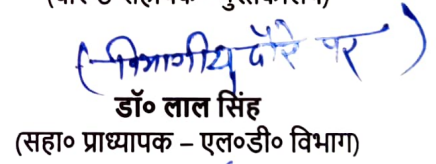 (विभागीय दौरे पर)
डॉ० लाल सिंह
(सहा० प्राध्यापक – एल०डी० विभाग)